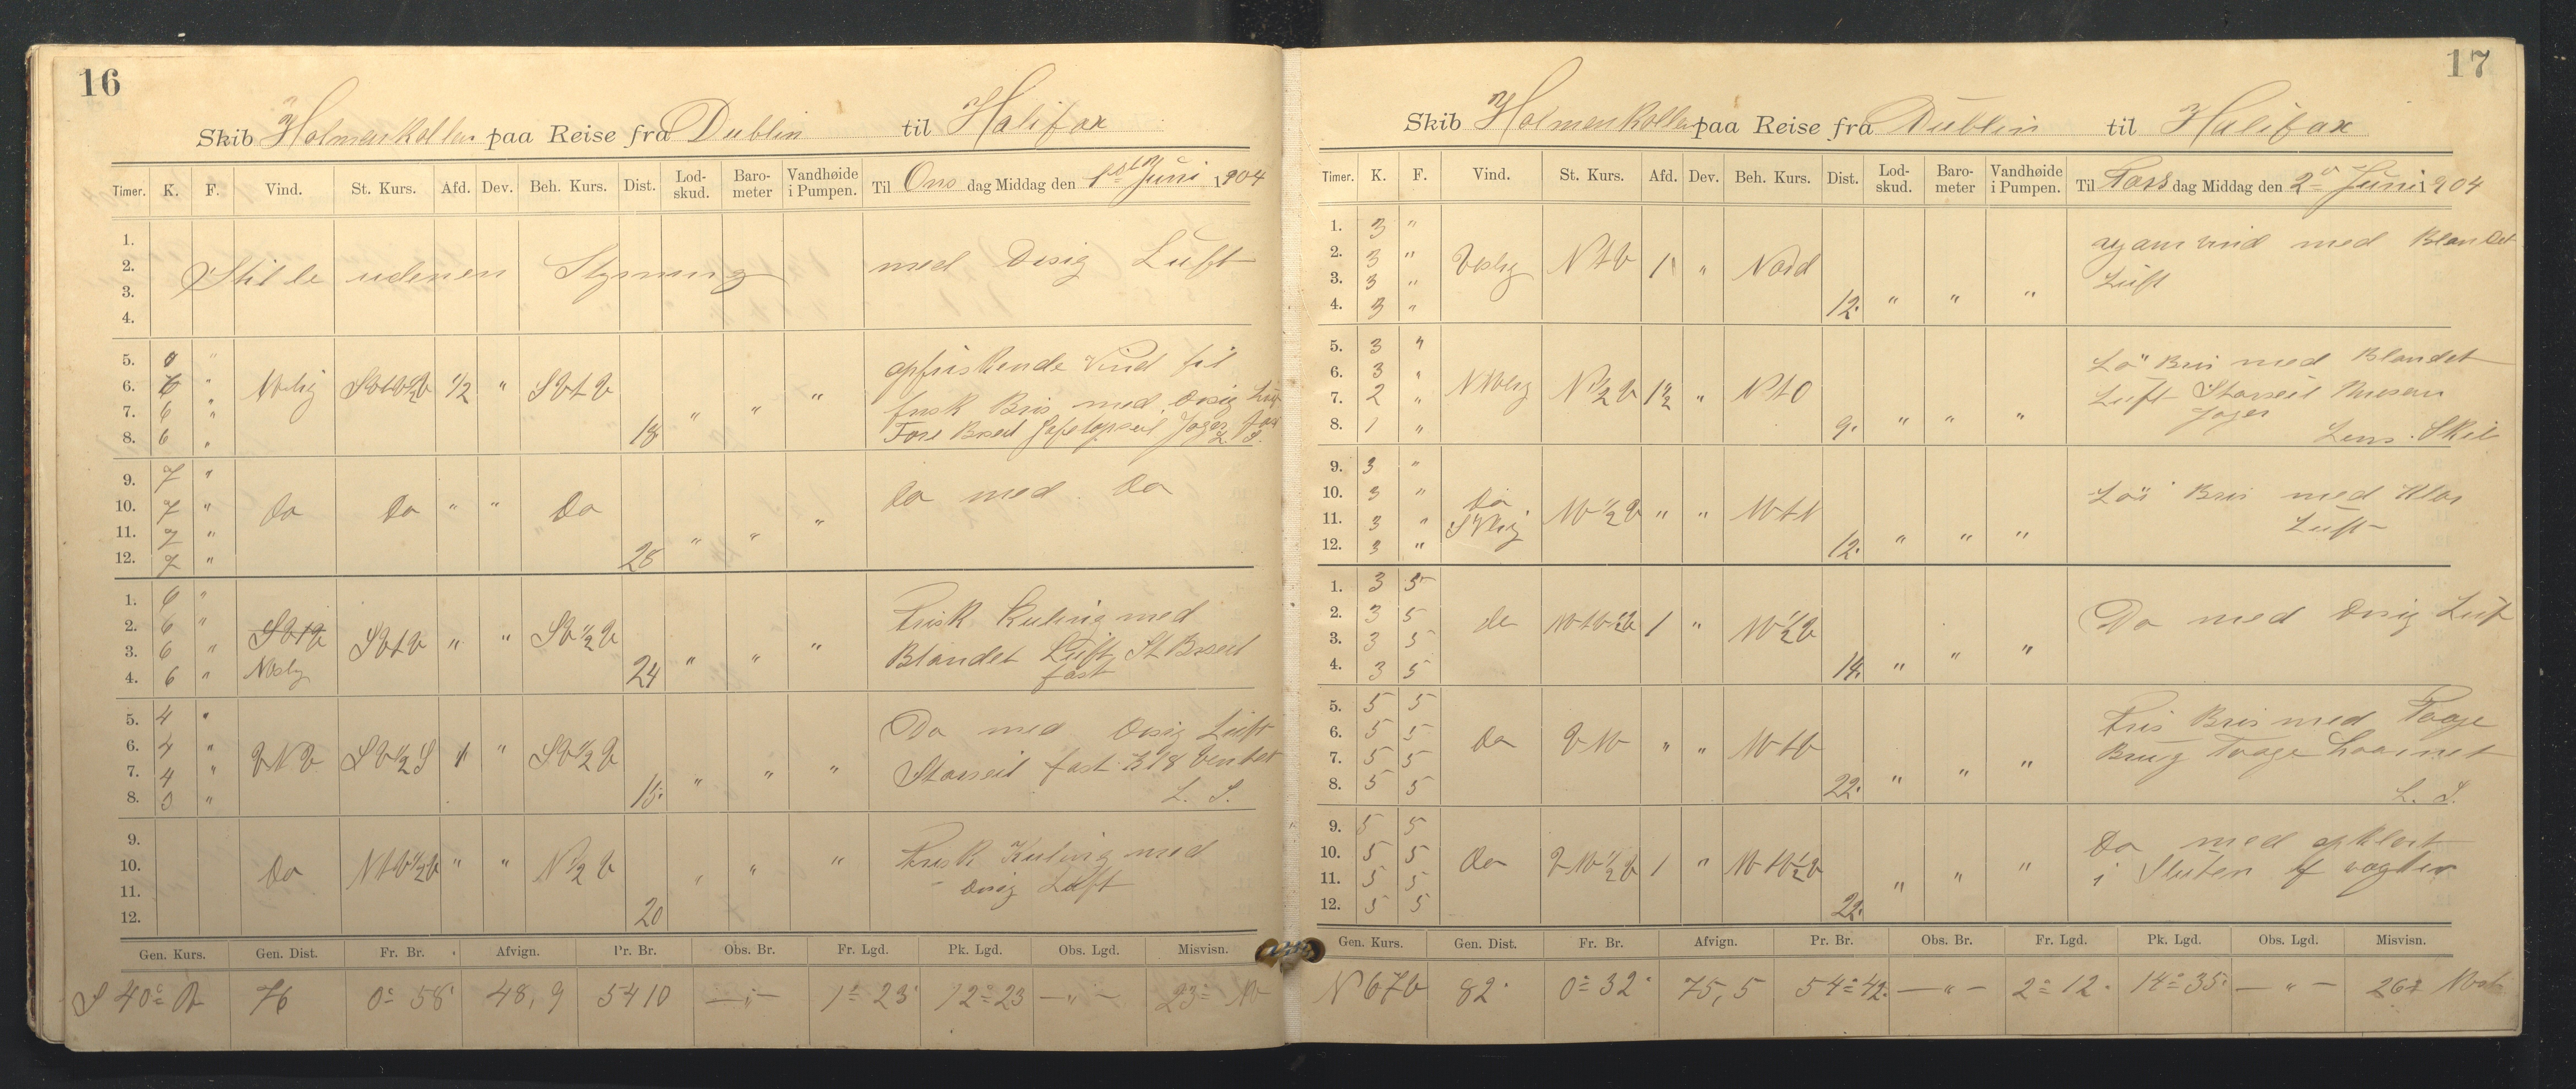 16
Skib Holmenkollen paa Reise fra Dublin til Halifax
Timer. K. F. Vind. St. Kurs. Afd. Dev. Beh. Kurs. Dist. Lod-skud. Baro-meter Vandhøide i Pumpen. Til Ons dag Middag den 1st Juni 1904
1.
2. Stille udenen Styrning med Disig Luft
3.
4.
5. " opfriskende Vind til
6. 6 " ½ " frisk Bris med Disig Luft
7. 6 " " " "
8. 6 " 18 Jager
9. 7 " Do med Do
10. 7 " Do Do " " Do
11. 7 " " " "
12. 7 " 28
1. 6 " Frisk Kuling med
2. 6 " SVtV SVtV " " SV½V
3. 6 " " " " Blandet Luft St Bseil
4. 6 " 24 fast
5. 4 " Do med Disig Luft
6. 4 " VNV SV½S 1 " SV½V
7. 4 " " " " Storseil fast
8. 3 " 15. L. S.
9. Frisk Kuling med
10. Do NtV½V " " N½V " " " Disig Luft
11.
12. 20
Gen. Kurs. Gen. Dist. Fr. Br. Afvign. Pr. Br. Obs. Br. Fr. Lgd. Pk. Lgd. Obs. Lgd. Misvisn.
S 40° V 76 0° 58' 48,9 54 10 — " — 1° 23' 12° 23 — " — 23°
17
Skib Holmenkollen paa Reise fra Dublin til Halifax
Timer. K. F. Vind. St. Kurs. Afd. Dev. Beh. Kurs. Dist. Lod-skud. Baro-meter Vandhøide i Pumpen. Til Tors dag Middag den 2d Juni 1904
1. 3 " med Blandet
2. 3 " Vestlig NtV 1 " Nord
3. 3 " Luft
4. 3 " 12. " " "
5. 3 " Bris med Blandet
6. 3 " Luft Storseil Mesan
7. 2 " N½V 1½ " NtO Jager
8. 1 " 9. " " " Lens. Skib
9. 3 "
10. 3 " Do Bris med Klar
11. 3 " " " Luft
12. 3 " 12. " " "
1. 3 5
2. 3 5 do 1 " Do med Disig Luft
3. 3 5
4. 3 5 14. " " "
5. 5 5 Fris Bris med Taage
6. 5 5 Do " " Brug Taage
7. 5 5
8. 5 5 22. " " " L. S.
9. 5 5 Do med opklart
10. 5 5 Do 1 " i Sluten af vagten
11. 5 5
12. 5 5 22. " " "
Gen. Kurs. Gen. Dist. Fr. Br. Afvign. Pr. Br. Obs. Br. Fr. Lgd. Pk. Lgd. Obs. Lgd. Misvisn.
N 67 V 82 0° 32' 75,5 54° 42' — " — 2° 12' 14° 35' — " —